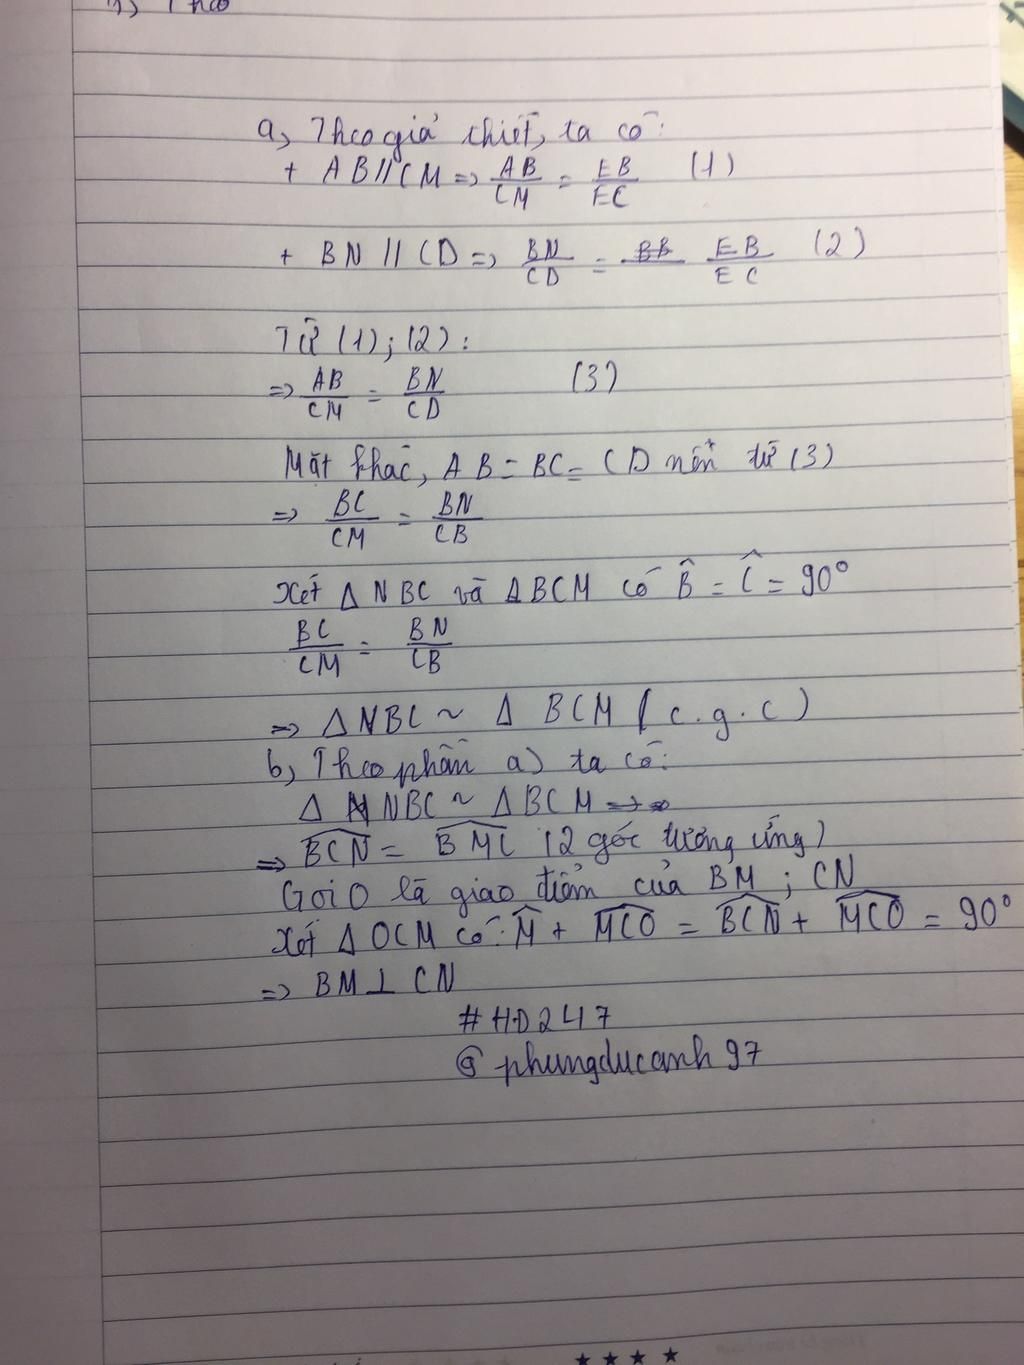 a, Theo giả thiết, ta có:
+ AB // CM => AB/CM = EB/EC (1)
+ BN // CD => BN/CD = EB/EC (2)
Từ (1); (2):
=> AB/CM = BN/CD (3)
Mặt khác, AB = BC = CD nên từ (3)
=> BC/CM = BN/CB
Xét Δ NBC và Δ BCM có B̂ = Ĉ = 90°
BC/CM = BN/CB
=> Δ NBC ~ Δ BCM (c.g.c)
b, Theo phần a) ta có:
Δ NBC ~ Δ BCM
=> BCN̂ = BMĈ (2 góc tương ứng)
Gọi O là giao điểm của BM; CN
Xét Δ OCM có: M̂ + MCÔ = BCN̂ + MCÔ = 90°
=> BM ⊥ CN
#HD247
@phungducanh97